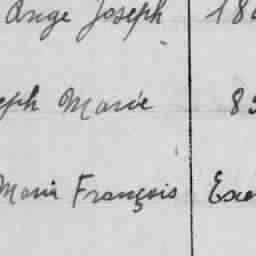 Ange Joseph 18
eph Marie 8
Marie François Exc